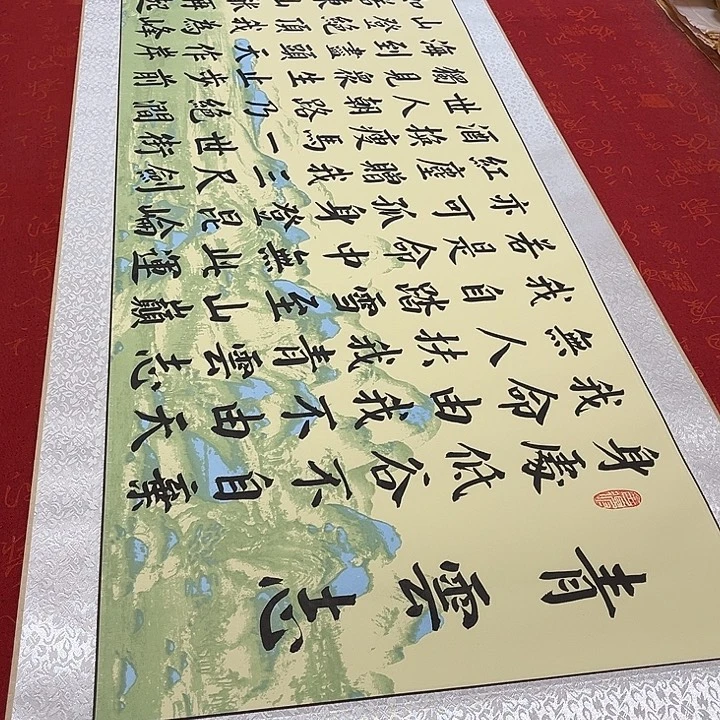 青雲志
身處低谷不自棄
我命由我不由天
無人扶我青雲志
我自踏雪至山巔
若是命中無此運
亦可孤身登昆崙
紅塵贈我三尺劍
酒換瘦馬一世術
世人朝路乃絕澗
獨見眾生止步前
海到盡頭天作岸
山登絕頂我為峰